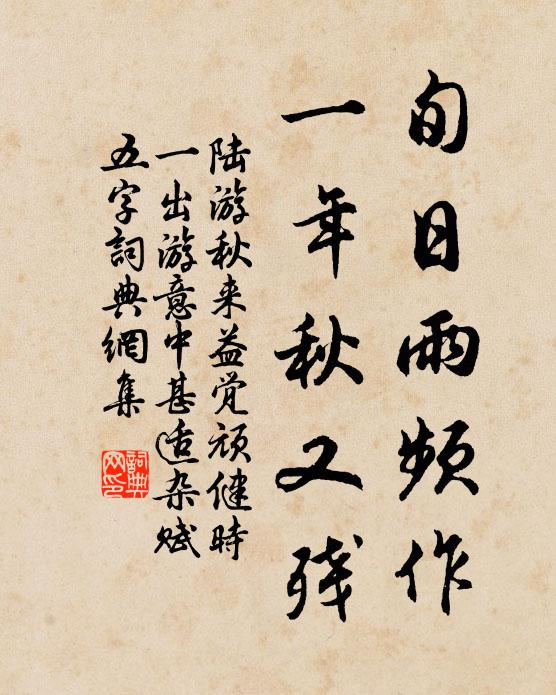 旬日雨頻作
一年秋又残
陆游秋来益觉顽健時
一出游意中甚适杂赋
五字詞典網集
詞典
网印